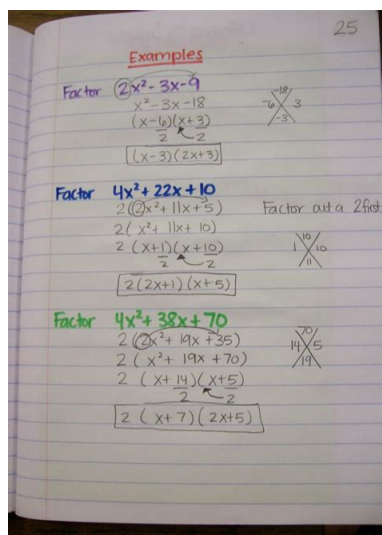 25
Examples
Factor 2x² - 3x - 9
x² - 3x - 18
(x - 6)(x + 3)
2 2
(x - 3)(2x + 3)
-18
-6 3
-3
Factor 4x² + 22x + 10
2(2x² + 11x + 5) Factor out a 2 first
2(x² + 11x + 10)
2 (x + 1)(x + 10)
2 2
2(2x + 1)(x + 5)
10
1 10
11
Factor 4x² + 38x + 70
2(2x² + 19x + 35)
2(x² + 19x + 70)
2 (x + 14)(x + 5)
2 2
2(x + 7)(2x + 5)
70
14 5
19